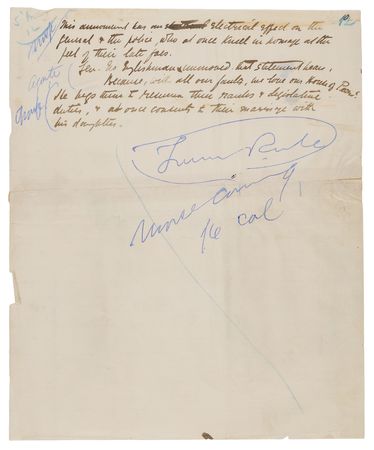 This announcement has an electrical effect on the
General & the police, who at once kneel in homage at the
feet of their late foes.
Gen. No Englishman unmoved that statement hears
Because, with all our faults, we love our House of Peers.
He begs them to resume their ranks & legislative
duties, & at once consents to their marriage with
his daughters.
Turn Rule
More Coming
16 col